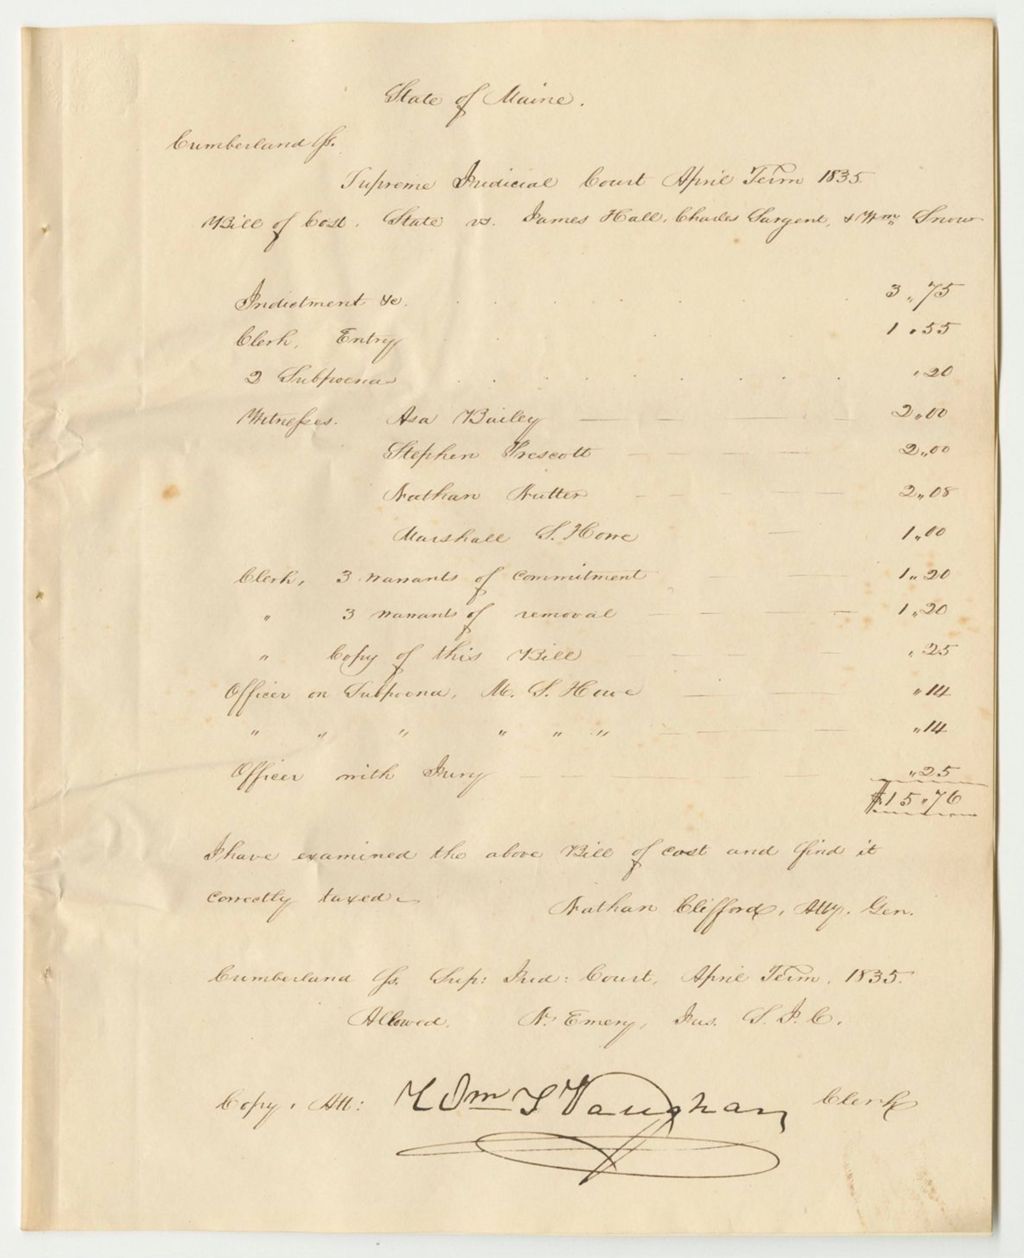 State of Maine.
Cumberland ss.
Supreme Judicial Court April Term 1835
Bill of Cost. State vs. James Hall, Charles Sargent, & Wm. Snow
Indictment &c. 3.75
Clerk, Entry 1.55
2 Subpoenas .20
Witnesses. Asa Bailey 2.00
Stephen Prescott 2.00
Nathan Nutter 2.08
Marshall S. Howe 1.00
Clerk, 3 warrants of commitment 1.20
" 3 warrants of removal 1.20
" Copy of this Bill .25
Officer on Subpoena, M. S. Howe .14
" " " " " " .14
Officer with Jury .25
$15.76
I have examined the above Bill of cost and find it
correctly taxed.
Nathan Clifford, Atty. Gen.
Cumberland ss. Sup: Jud: Court, April Term, 1835.
Allowed. N. Emery, Jus. S. J. C.
Copy. Att: Wm T Vaughan Clerk